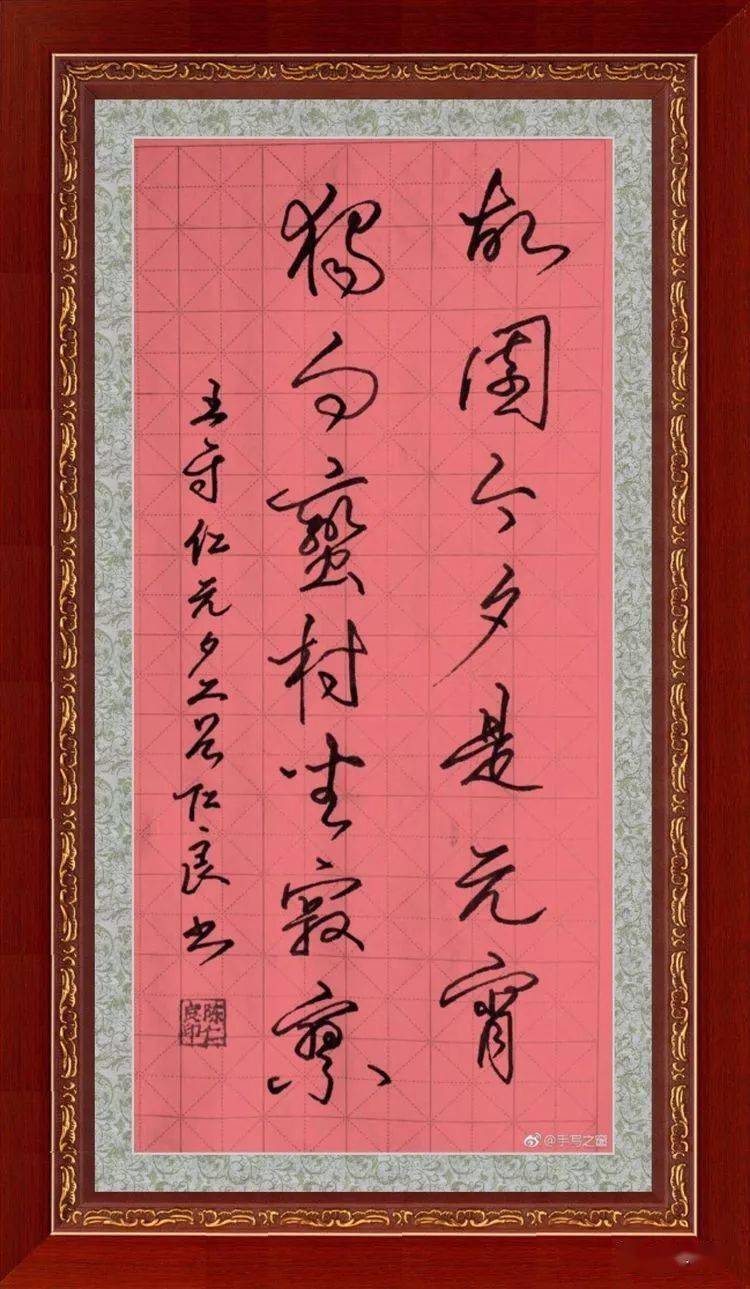 故園今夕是元宵
獨向蠻村坐寂寥
王守仁元夕二首仁良书
陈仁良印
@手写之窗